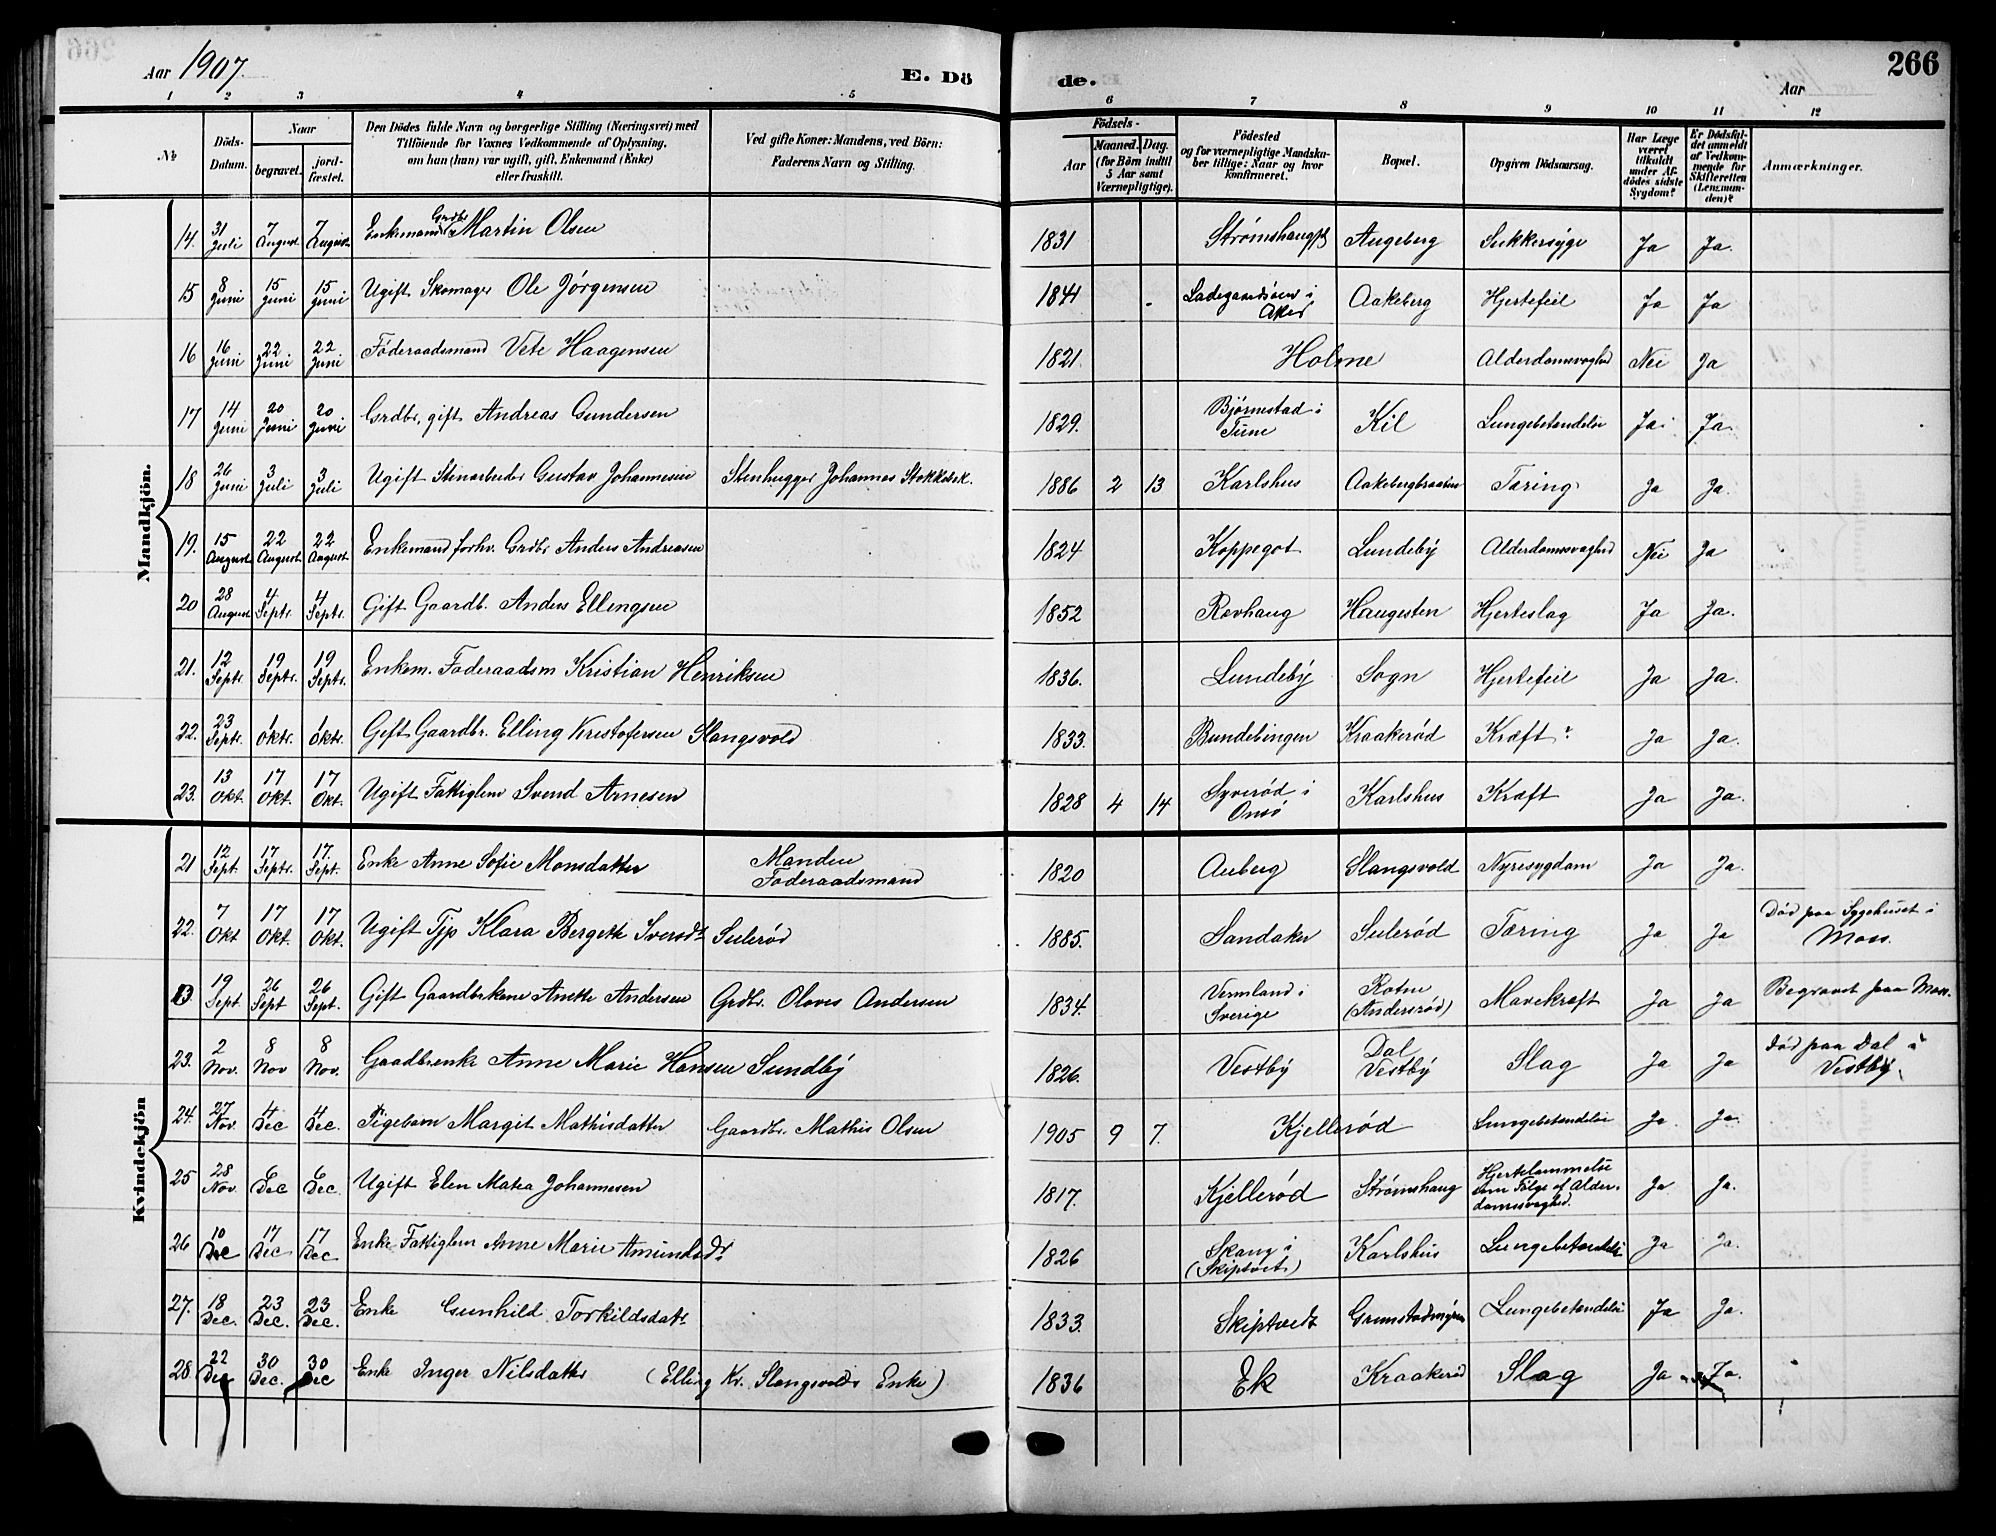 Aar 1907.
E. Dö
de.
Aar
266
1 2 3 4 5 6 7 8 9 10 11 12
No
Döds-Datum.
Naar
begravet.
jordfæstet.
Den Dödes fulde Navn og borgerlige Stilling (Næringsvei) med
Tilföiende for Voxnes Vedkommende af Oplysning,
om han (hun) var ugift, gift, Enkemand (Enke)
eller fraskilt.
Ved gifte Koner: Mandens, ved Börn:
Faderens Navn og Stilling.
Födsels-
Aar
Maaned. Dag.
(for Börn indtil
5 Aar samt
Værnepligtige).
Födested
og for værnepligtige Mandskaber tillige: Naar og hvor
konfirmeret.
Bopæl.
Opgiven Dödsaarsag.
Har Læge
været
tilkaldt
under Afdödes sidste
Sygdom?
Er Dödsfaldet anmeldt
af Vedkommende for
Skifteretten
(Lensmanden)?
Anmærkninger.
Mandkjön.
14. 31 Juli 7 August 7 August Enkemand Grdbr Martin Olsen 1831 Strømshaug Augeberg Sukkersyge Ja Ja.
15 8 Juni 15 Juni 15 Juni Ugift Skomager Ole Jørgensen 1841 Ladegaardsøen i Aker Aakeberg Hjertefeil Ja Ja
16 16 Juni 22 Juni 22 Juni Föderaadsmand Vete Haagensen 1821. Holme Alderdomsvaghed Nei Ja
17 14 Juni 20 Juni 20 Juni Grdbr, gift Andreas Gundersen 1829. Bjørnestad i Tune Kil Lungebetændelse Ja Ja
18 26 Juni 3 Juli 3 Juli Ugift Stenarbeider Gustav Johannesen Stenhugger Johannes Stokkebæk. 1886 2 13 Karlshus Aakebergbraaten Tæring Ja Ja.
19. 15 August 22 August 22 August Enkemand forhv. Grdbr Anders Andreasen 1824 Koppegot Lundeby Alderdomsvaghed Nei Ja
20 28 August 4 Septr. 4 Septr. Gift Gaardb. Anders Ellingsen 1852 Revhaug Haugesten Hjerteslag Ja Ja.
21. 12 Septr 19 Septr. 19 Septr. Enkem. Föderaadsm Kristian Henriksen 1836. Lundeby Sogn Hjertefeil Ja Ja.
22. 23 Septr. 1 Oktr. 1 Oktr. Gift Gaardbr. Elling Kristofersen Slangsvold 1833. Bundebingen Kraakerød Kræft ? Ja Ja.
23. 13 Okt. 17 Okt. 17 Okt. Ugift Fattiglem Svend Arnesen 1828 4 14 Syverød i Onsø Karlshus Kræft Ja Ja.
Kvindekjön
21 12 Sept. 17 Septr. 17. Sept. Enke Anne Sofie Monsdatter Manden Föderaadsmand 1820 Auberg Slangsvold Nyresygdom Ja Ja.
22. 7 Okt 17 Okt. 17 Okt. Ugift Tjp Klara Bergete Iversdt Sulerød 1885. Sandaker Sulerød Tæring Ja Ja Død paa Sygehuset i Moss.
19 Sept. 26 Sept 26 Sept. Gift Gaardbrkone Anette Andersen Grdbr. Oloves Andersen 1834. Vermland i Sverige Rotne (Andersrød) Mavekræft Ja Ja Begravet paa Moss.
23. 2 Nov. 8 Nov 8 Nov. Gaardbrenke Anne Marie Hansen Sundby 1826. Vestby Dal Vestby Slag Ja Ja død paa Dal i Vestby.
24. 27 Nov. 4 Dec 4 Dec. Pigebarn Margit Mathisdatter Gaardbr. Mathis Olsen 1905 9 7. Kjellerød Lungebetændelse Ja Ja.
25 28 Nov. 6 Dec 6 Dec. Ugift Elen Matea Johannesen 1817. Kjellerød Strømshaug Hjertelammelse som Følge af Alderdomsvaghed. Ja Ja.
26 10 Dec 17 Dec 17 Dec Enke Fattiglem Anne Marie Amundsdr 1826 Skaug i (Skiptvet) Karlshus Lungebetændelse Ja Ja.
27. 18 Dec. 23 Dec. 23 Dec. Enke Gunhild Torkildsdatr 1833. Skiptvedt Grimstadmyren Lungebetændelse Ja Ja.
28. 22 Dec 30 Dec. 30 Dec Enke Inger Nilsdatter (Elling Kr. Slangsvolds Enke) 1836 Ek Kraakerød Slag Ja Ja.